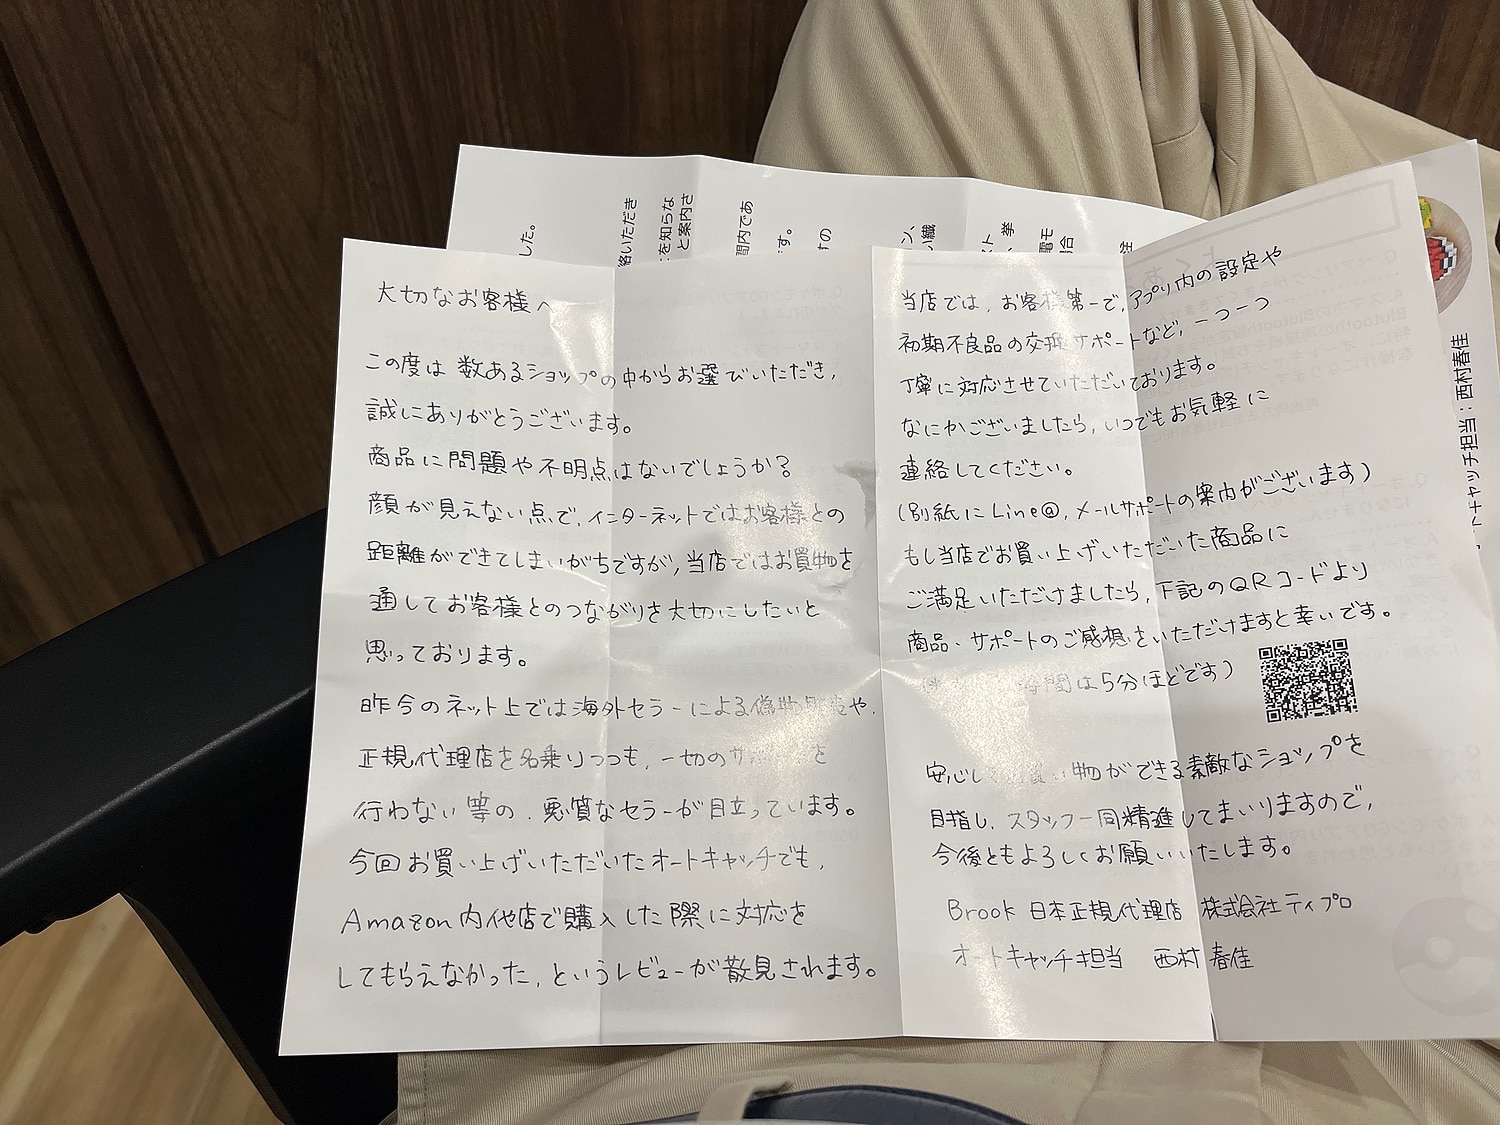 大切なお客様へ
この度は数あるショップの中からお選びいただき,
誠にありがとうございます。
商品に問題や不明点はないでしょうか?
顔が見えない点で,インターネットではお客様との
距離ができてしまいがちですが,当店ではお買物を
通してお客様とのつながりを大切にしたいと
思っております。
昨今のネット上では海外セラーによる偽物や,
正規代理店を名乗りつつも,一切のを
行わない等の,悪質なセラーが目立っています。
今回お買い上げいただいたオートキャッチでも,
Amazon内他店で購入した際に対応を
してもらえなかった,というレビューが散見されます。
当店では,お客様第一で,アプリ内の設定や
初期不良品の交換サポートなど,一つ一つ
丁寧に対応させていただいております。
なにかございましたら,いつでもお気軽に
連絡してください。
(別紙にLine@,メールサポートの案内がございます)
もし当店でお買い上げいただいた商品に
ご満足いただけましたら,下記のQRコードより
商品、サポートのご感想をいただけますと幸いです。
時間は5分ほどです)
安心してお買い物ができる素敵なショップを
目指し,スタッフ一同精進してまいりますので,
今後ともよろしくお願いいたします。
Brook 日本正規代理店 株式会社ティプロ
オートキャッチ担当 西村春佳
した。
絡いただき
を知らな
と案内さ
間内であ
す。
すの
ン、
い織
スト
、挙
電モ
場合
トキャッチ担当:西村春佳